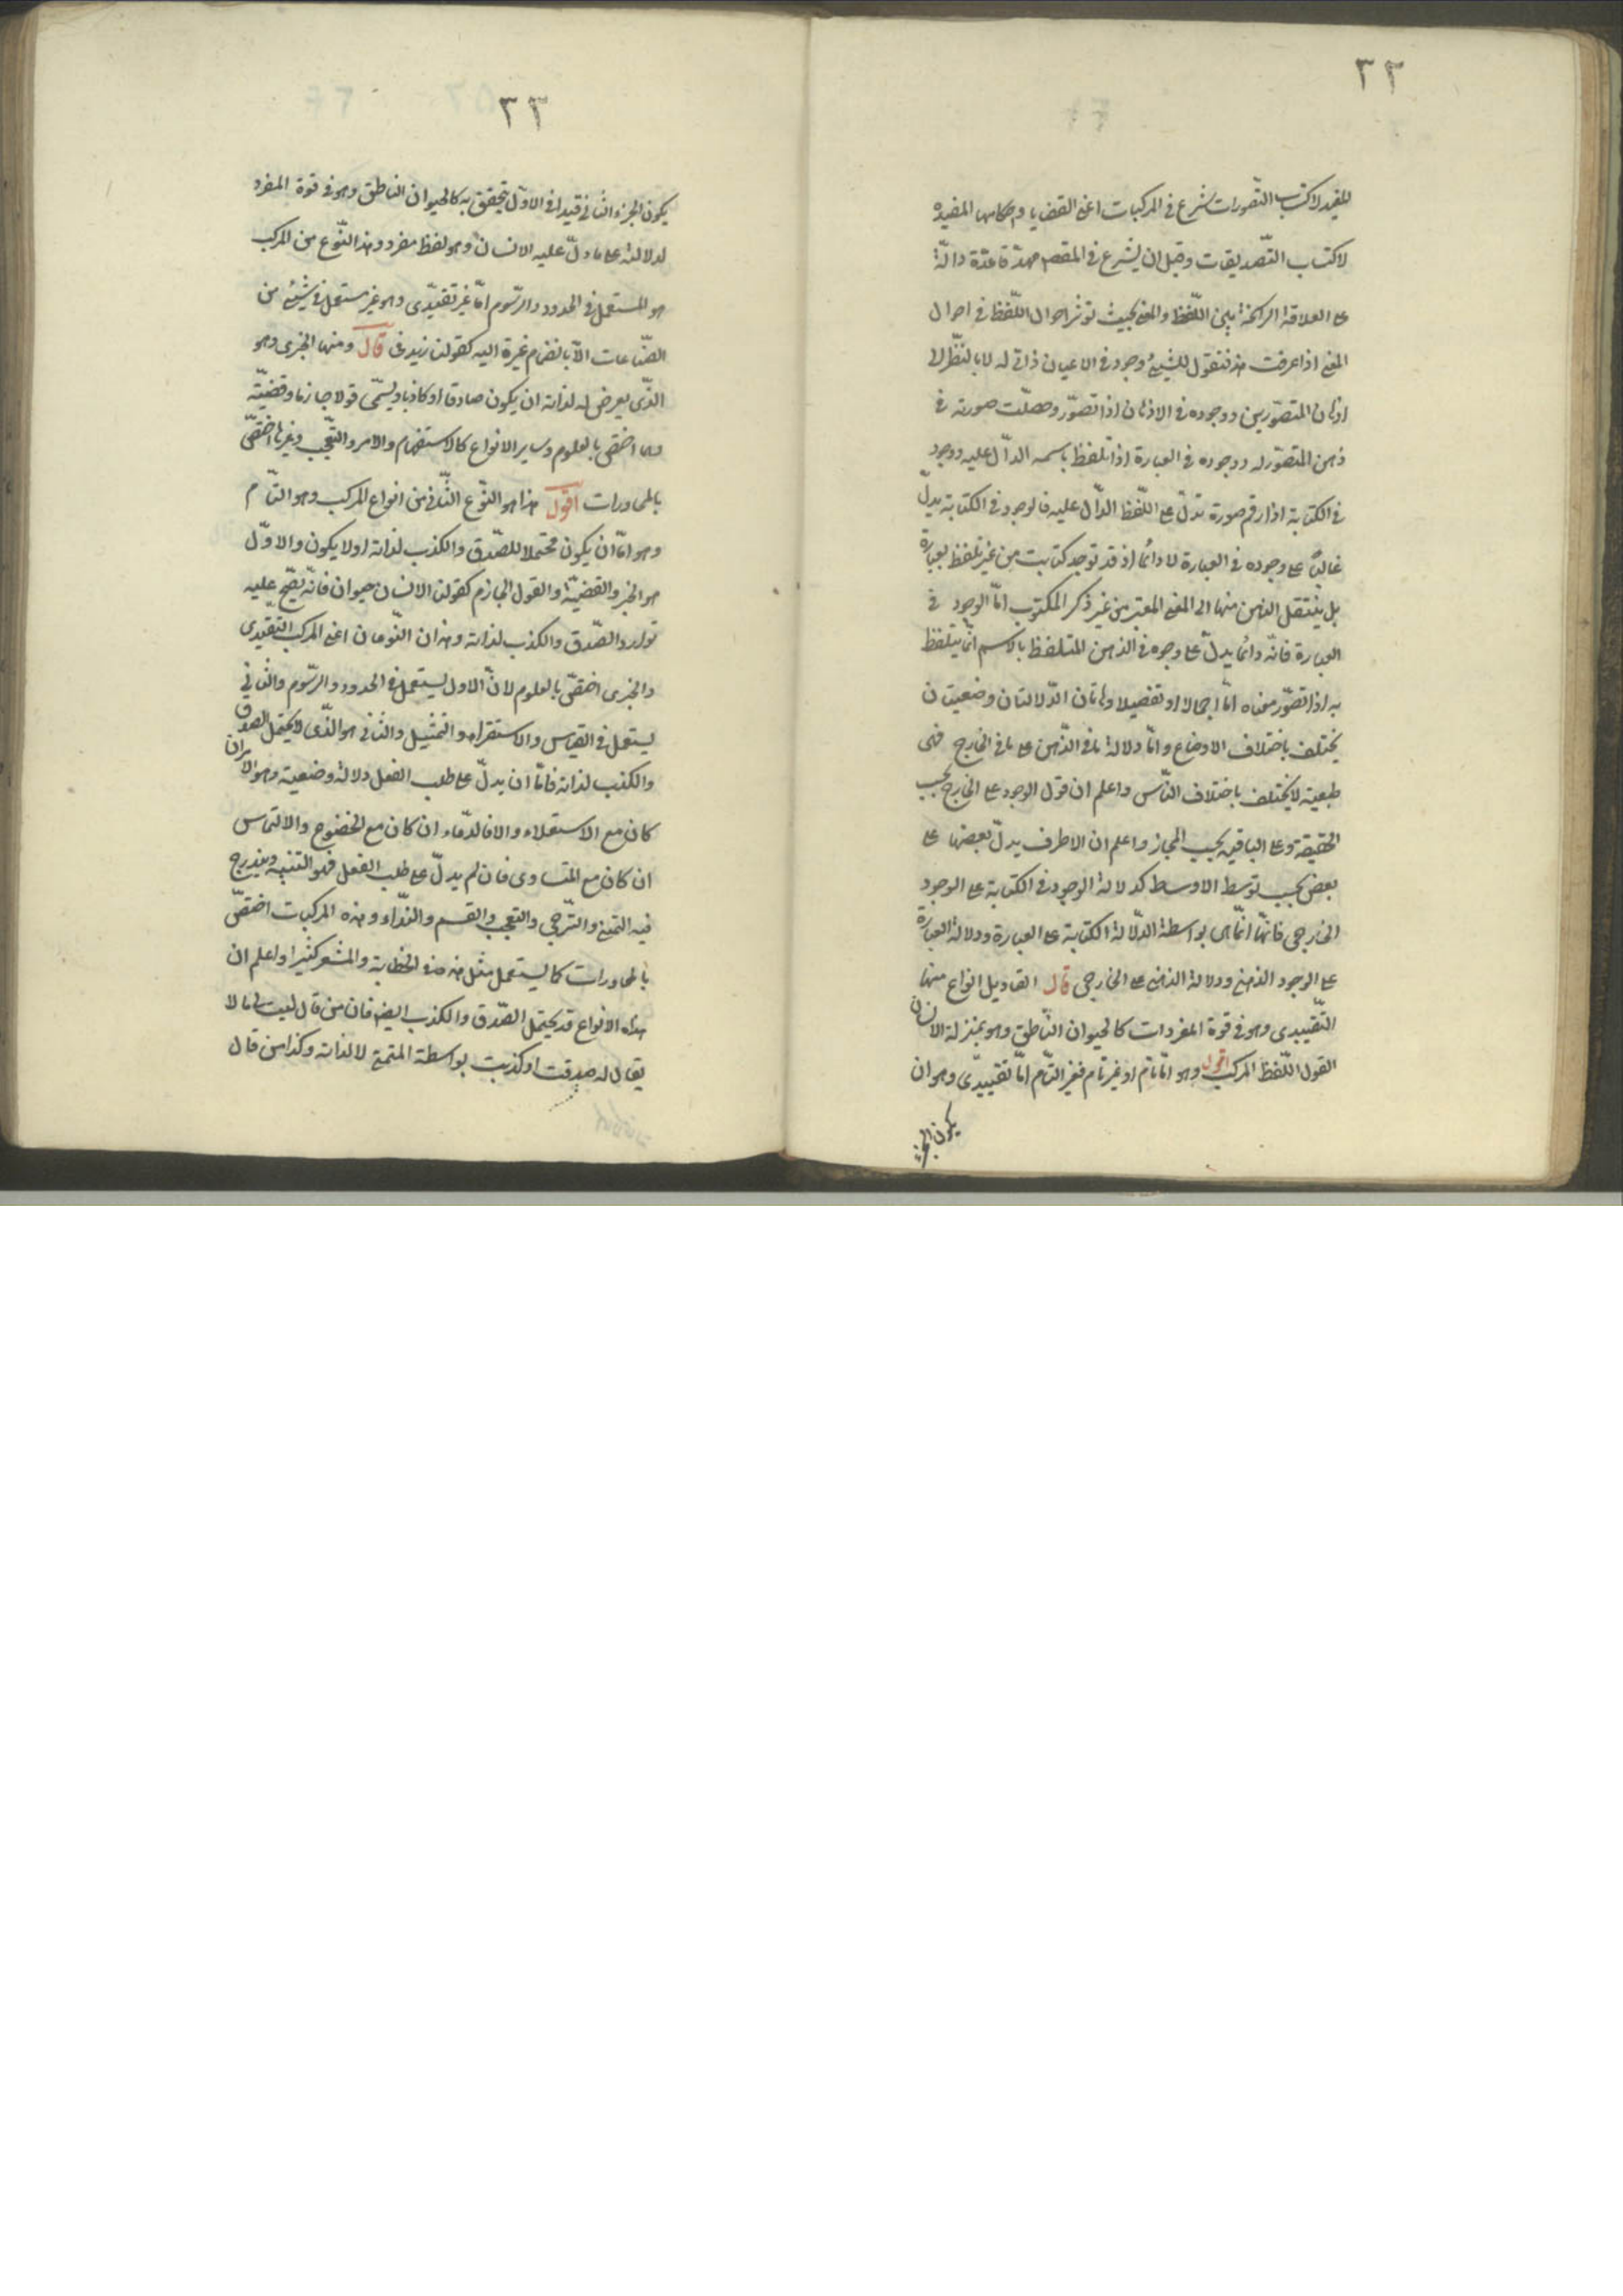 ٣٣
للمفيد لاكتساب التّصورات شرع في المركبات اعنى القضايا واحكامها المفيده
لاكتساب التّصديقات وقبل ان يشرع في المقصد مهّد قاعدة دالّة
على العلاقة الراسخة بين اللّفظ والمعنى بحيث تؤثر احوال اللّفظ في احوال
المعنى اذا عرفت هذ فنقول للشيئ وجود في الاعيان ذاتي له لا بالنّظر الى
اذهان المتصوّرين ووجوده في الاذهان اذا تصوّر وحصلت صورته في
ذهن المتصوّر له ووجوده في العبارة اذا تلفظ باسمه الدالّ عليه ووجود
في الكتابة اذا رقم صورة تدلّ على اللّفظ الدّال عليه فالوجود في الكتابة يدلّ
غالبًا على وجوده في العبارة لا دائما اذ قد توجد كتابت من غير تلفظ بعبارة
بل ينتقل الذهن منها الى المعنى المعتبر من غير ذكر المكتوب امّا الوجود في
العبارة فانّه دائما يدلّ على وجوه في الذهن المتلفظ بالاسم انّما يتلفظ
به اذا تصوّر معناه امّا اجمالا او تفصيلا وهاتان الدّلالتان وضعيتان
يختلف باختلاف الاوضاع وامّا دلالة ما في الذّهن على ما في الخارج فهى
طبعية لا يختلف باختلاف النّاس واعلم ان قول الوجود على الخارج بحسب
الحقيقة وعلى الباقيه بحسب المجاز واعلم ان الاطراف يدلّ بعضها على
بعض بحسب توسط الاوسط كدلالة الوجود في الكتابة على الوجود
الخارجى فانّها انّما هى بواسطة الدّلالة الكتابة على العبارة ودلالة العبارة
على الوجود الذهنى ودلالة الذهنى على الخارجى قال القاويل انواع منها
التّقييدى وهو في قوة المفردات كالحيوان النّاطق وهو بمنزلة الانسان
اقول القول اللّفظ المركب وهو امّا تام او غير تام فغير التّام امّا تقييدّى وهو ان
يكون الجزء
٣٣
يكون الجزء الثّانى قيدا في الاوّل يتحقق به كالحيوان الناطق وهو في قوة المفرد
لدلالته على ما دلّ عليه الانسان وهو لفظ مفرد وهذ النّوع من المركب
هو المستعمل في الحدود والرّسوم امّا غير تقيّدى وهو غير مستعمل في شيئ من
الصّناعات الاّ بانضمام غيره اليه كقولنا زيد في قال ومنها الخبرى وهو
الذّى يعرض له لذاته ان يكون صادقا او كاذبا ويسمّى قولا جازما وقضيّته
وهما اختص بالعلوم وسائر الانواع كالاستفهام والامر والتعّجب وغيرها اختصّ
بالمحاورات اقول هذا هو النّوع الثّانى من انواع المركب وهو التّام
وهو امّا ان يكون محتملا للصّدق والكذب لذاته او لا يكون والاوّل
هو الخبر والقضيّة والقول الجازم كقولنا الانسان حيوان فانّه يصّح عليه
توارد الصّدق والكذب لذاته وهذان النّوعان اعنى المركب التّقيّدى
والخبرى اختصّ بالعلوم لانّ الاول يستعمل في الحدود والرّسوم والثّانى
يستعمل في القياس والاستقراء والتمثيل والثّانى هو الذّى لا يحتمل الصدق
والكذب لذاته فامّا ان يدلّ على طلب الفعل دلالة وضعية وهو الامر ان
كان مع الاستعلاء والا فالدّعاء ان كان مع الخضوع والالتماس
ان كان مع التساوى فان لم يدلّ على طلب الفعل فهو التنبيه ويندرج
فيه التمنى والتّرجى والتعجب والقسم والنّداء وهذه المركبات اختصّ
بالمحاورات كما يستعمل مثل هذه في الخطابة والشعر كثيرا واعلم ان
هذه الانواع قد يحتمل الصّدق والكذب ايضا فان من قال ليت لى مالا
يقال له صدقت او كذبت بواسطة المتمنى لا لذاته وكذا من قال